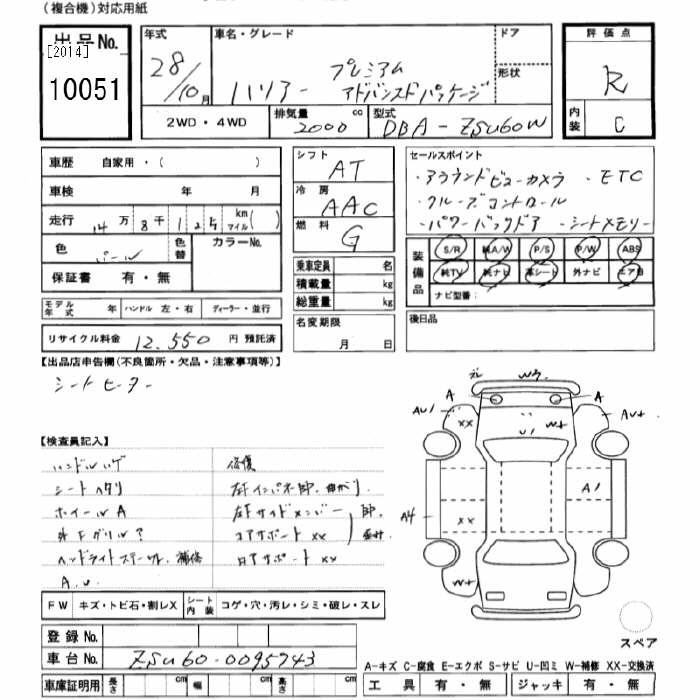 (複合機)対応用紙
出品No.
[2014]
10051
年式
28/10月
車名・グレード
ハリアー プレミアム
アドバンスドパッケージ
ドア
形状
評価点
R
内装
C
2WD・4WD
排気量
2000 cc
型式
DBA-ZSU60W
車歴 自家用・( )
車検 年 月
走行 14万 8千 1 km マイル( )
色 パール 色替 カラーNo.
保証書 有・無
モデル年式 年 ハンドル 左・右 ディーラー・並行
リサイクル料金 12.550 円 預託済
シフト
AT
冷房
AAC
燃料
G
乗車定員 名
積載量 kg
総重量 kg
名変期限
月 日
セールスポイント
・アラウンドビューカメラ ・ETC
・クルーズコントロール
・パワーバックドア ・シートメモリー
装備品
S/R 純A/W P/S P/W ABS
純TV 純ナビ 革シート 外ナビ エアB
ナビ型番:
後日品
【出品店申告欄(不良箇所・欠品・注意事項等)】
シートヒーター
【検査員記入】
ハンドルハゲ
シートヘタリ
ホイールA
外Fグリル?
ヘッドライトスチール 補修
A.U.
修復
左Fインパネ部、曲がり
左Fサイドメンバー
コアサポートXX
ロアサポートXX
元 W3
A A
AU1 AU+
XX
U1 W+
A4
XX
A1
W+
スペア
FW キズ・トビ石・割レX シート内装 コゲ・穴・汚レ・シミ・破レ・スレ
登録No.
車台No. ZSU60-0095743
車庫証明用 長さ cm 幅 cm 高さ cm
A-キズ C-腐食 E-エクボ S-サビ U-凹ミ W-補修 XX-交換済
工具 有・無 ジャッキ 有・無